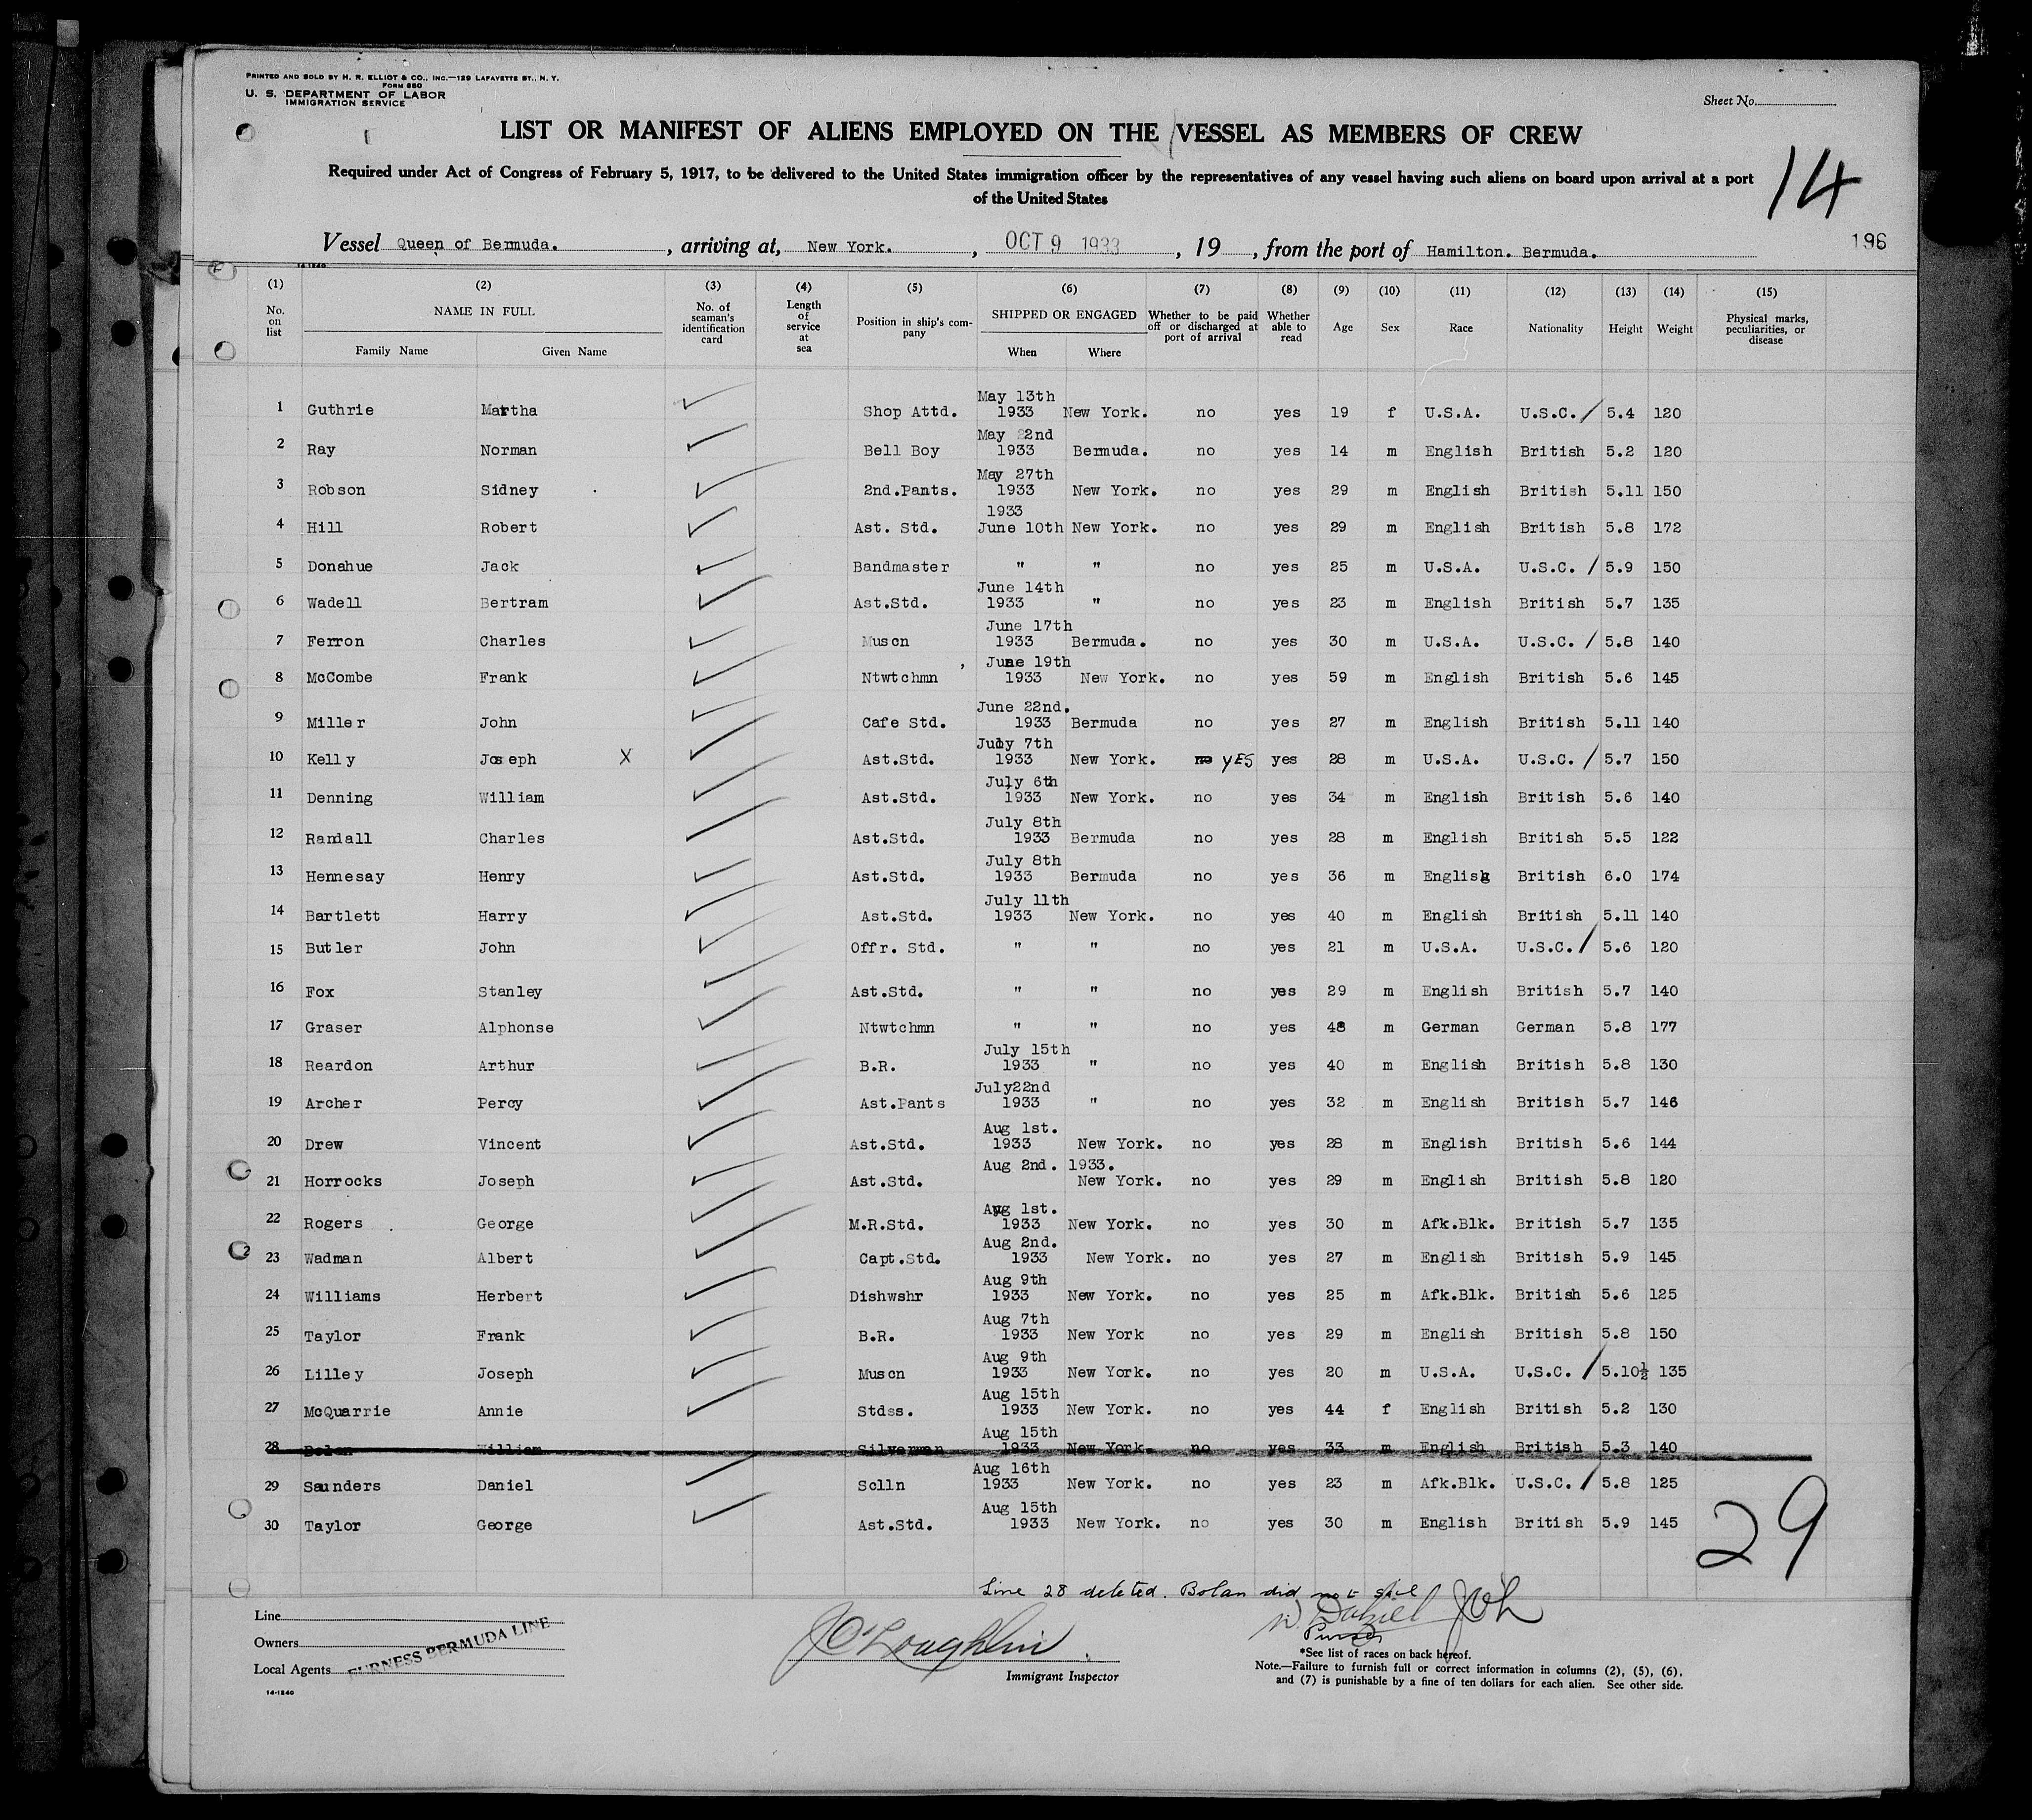 PRINTED AND SOLD BY H. R. ELLIOT & CO., INC.—129 LAFAYETTE ST., N. Y.
FORM 680
U. S. DEPARTMENT OF LABOR
IMMIGRATION SERVICE
Sheet No.
LIST OR MANIFEST OF ALIENS EMPLOYED ON THE VESSEL AS MEMBERS OF CREW
Required under Act of Congress of February 5, 1917, to be delivered to the United States immigration officer by the representatives of any vessel having such aliens on board upon arrival at a port
of the United States
14
Vessel Queen of Bermuda. , arriving at, New York. , OCT 9 1933 , 19 , from the port of Hamilton. Bermuda. 196
14-1240
(1) (2) (3) (4) (5) (6) (7) (8) (9) (10) (11) (12) (13) (14) (15)
No. on list NAME IN FULL Family Name Given Name No. of seaman's identification card Length of service at sea Position in ship's company SHIPPED OR ENGAGED When Where Whether to be paid off or discharged at port of arrival Whether able to read Age Sex Race Nationality Height Weight Physical marks, peculiarities, or disease
1 Guthrie Martha Shop Attd. May 13th 1933 New York. no yes 19 f U.S.A. U.S.C. / 5.4 120
2 Ray Norman Bell Boy May 22nd 1933 Bermuda. no yes 14 m English British 5.2 120
3 Robson Sidney 2nd.Pants. May 27th 1933 New York. no yes 29 m English British 5.11 150
4 Hill Robert Ast. Std. 1933 June 10th New York. no yes 29 m English British 5.8 172
5 Donahue Jack Bandmaster " " no yes 25 m U.S.A. U.S.C. / 5.9 150
6 Wadell Bertram Ast.Std. June 14th 1933 " no yes 23 m English British 5.7 135
7 Ferron Charles Muscn June 17th 1933 Bermuda. no yes 30 m U.S.A. U.S.C. / 5.8 140
8 McCombe Frank Ntwtchmn June 19th 1933 New York. no yes 59 m English British 5.6 145
9 Miller John Cafe Std. June 22nd. 1933 Bermuda no yes 27 m English British 5.11 140
10 Kelly Joseph X Ast.Std. July 7th 1933 New York. no YES yes 28 m U.S.A. U.S.C. / 5.7 150
11 Denning William Ast.Std. July 6th 1933 New York. no yes 34 m English British 5.6 140
12 Randall Charles Ast.Std. July 8th 1933 Bermuda no yes 28 m English British 5.5 122
13 Hennesay Henry Ast.Std. July 8th 1933 Bermuda no yes 36 m English British 6.0 174
14 Bartlett Harry Ast.Std. July 11th 1933 New York. no yes 40 m English British 5.11 140
15 Butler John Offr. Std. " " no yes 21 m U.S.A. U.S.C. / 5.6 120
16 Fox Stanley Ast.Std. " " no yes 29 m English British 5.7 140
17 Graser Alphonse Ntwtchmn " " no yes 48 m German German 5.8 177
18 Reardon Arthur B.R. July 15th 1933 " no yes 40 m English British 5.8 130
19 Archer Percy Ast.Pants July22nd 1933 " no yes 32 m English British 5.7 146
20 Drew Vincent Ast.Std. Aug 1st. 1933 New York. no yes 28 m English British 5.6 144
21 Horrocks Joseph Ast.Std. Aug 2nd. 1933. New York. no yes 29 m English British 5.8 120
22 Rogers George M.R.Std. Aug 1st. 1933 New York. no yes 30 m Afk.Blk. British 5.7 135
23 Wadman Albert Capt.Std. Aug 2nd. 1933 New York. no yes 27 m English British 5.9 145
24 Williams Herbert Dishwshr Aug 9th 1933 New York. no yes 25 m Afk.Blk. British 5.6 125
25 Taylor Frank B.R. Aug 7th 1933 New York no yes 29 m English British 5.8 150
26 Lilley Joseph Muscn Aug 9th 1933 New York. no yes 20 m U.S.A. U.S.C. / 5.10½ 135
27 McQuarrie Annie Stdss. Aug 15th 1933 New York. no yes 44 f English British 5.2 130
28 Bolan William Silverman Aug 15th 1933 New York. no yes 33 m English British 5.3 140
29 Saunders Daniel Sclln Aug 16th 1933 New York. no yes 23 m Afk.Blk. U.S.C. / 5.8 125
30 Taylor George Ast.Std. Aug 15th 1933 New York. no yes 30 m English British 5.9 145
29
Line 28 deleted. Bolan did not sail
Line
Owners
Local Agents
FURNESS BERMUDA LINE
14-1240
J O'Loughlin
Immigrant Inspector
Daniel JOL
Purser
*See list of races on back hereof.
Note.—Failure to furnish full or correct information in columns (2), (5), (6),
and (7) is punishable by a fine of ten dollars for each alien. See other side.